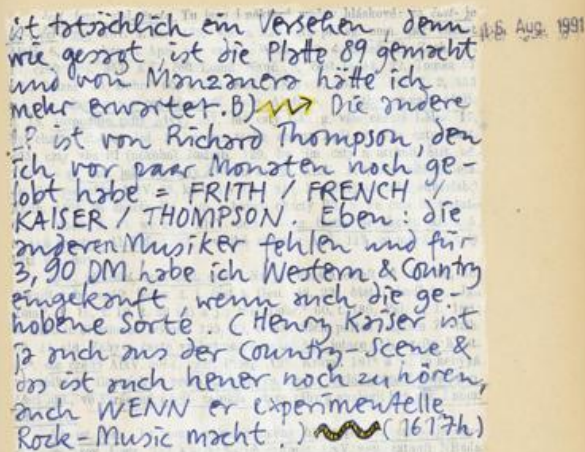 ist tatsächlich ein Versehen denn
16. Aug. 1991
wie gesagt, ist die Platte 89 gemacht
und von Manzanera hätte ich
mehr erwartet. B) Die andere
LP ist von Richard Thompson, den
ich vor paar Monaten noch ge-
lobt habe = FRITH / FRENCH /
KAISER / THOMPSON. Eben: die
anderen Musiker fehlen und für
3,90 DM habe ich Western & Country
eingekauft, wenn auch die ge-
hobene Sorte. (Henry Kaiser ist
ja auch aus der Country-Scene &
das ist auch heuer noch zu hören,
auch WENN er experimentelle
Rock-Music macht.) (1617h)